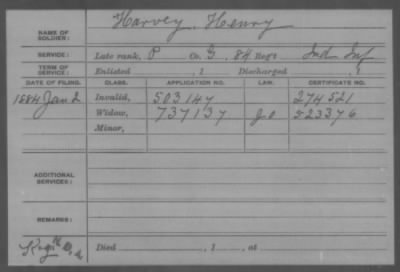 NAME OF SOLDIER: Harvey, Henry
SERVICE: Late rank, P Co. G, 84 Reg't Ind Inf
TERM OF SERVICE: Enlisted , 1 Discharged , 1
DATE OF FILING. CLASS. APPLICATION NO. LAW. CERTIFICATE NO.
1884 Jan 2 Invalid, 503147 274521
Widow, 737137 523376
Minor,
ADDITIONAL SERVICES:
REMARKS:
Died , 1 , at